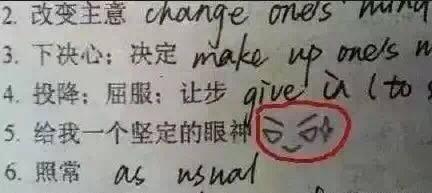 2. 改变主意 change one's mind
3. 下决心；决定 make up one's m
4. 投降；屈服；让步 give in (to s
5. 给我一个坚定的眼神
6. 照常 as usual